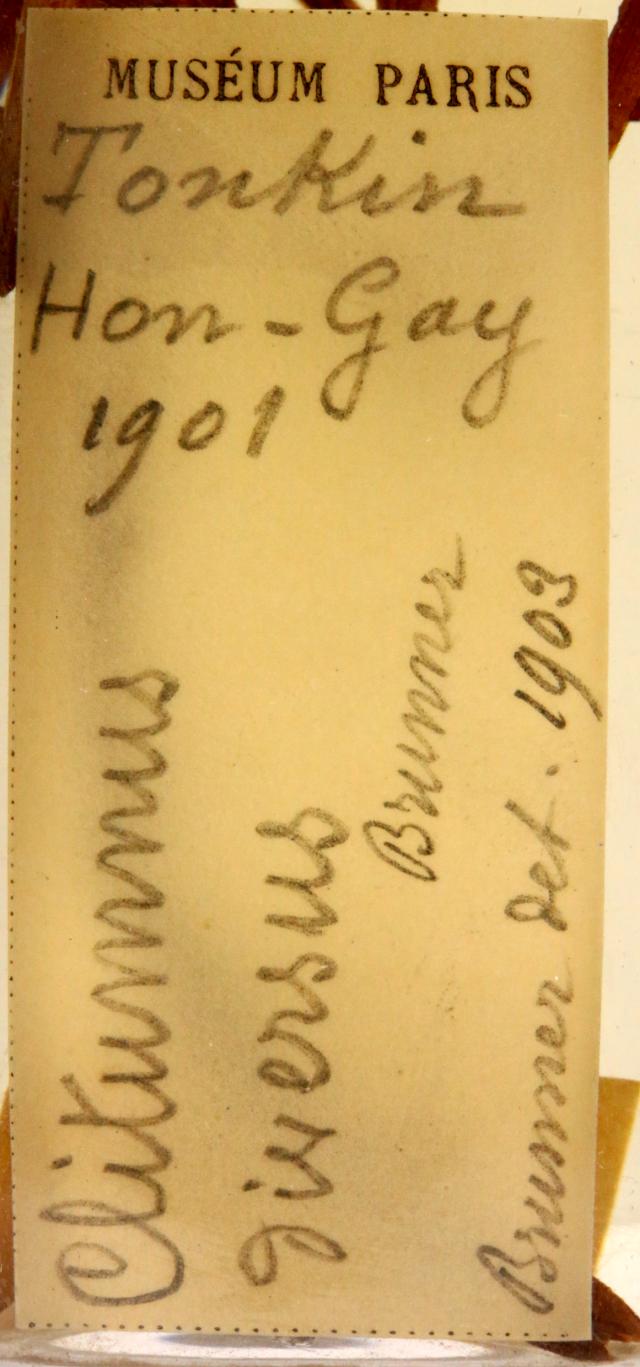 MUSÉUM PARIS
Tonkin
Hon-Gay
1901
Clitumnus
diversus
Brunner
Brunner det. 1903